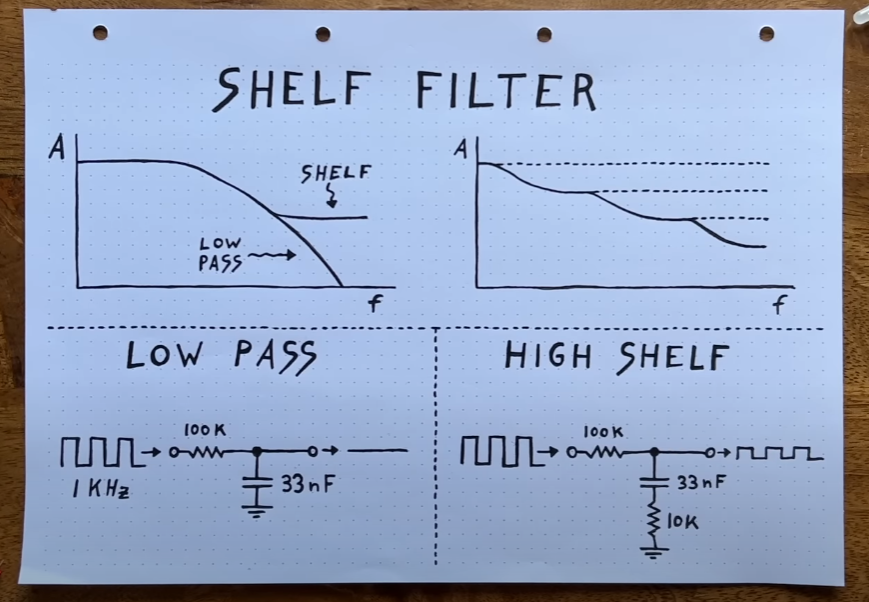 SHELF FILTER
A
SHELF
LOW
PASS
f
A
f
LOW PASS
100K
1 KHz
33nF
HIGH SHELF
100K
33nF
10K